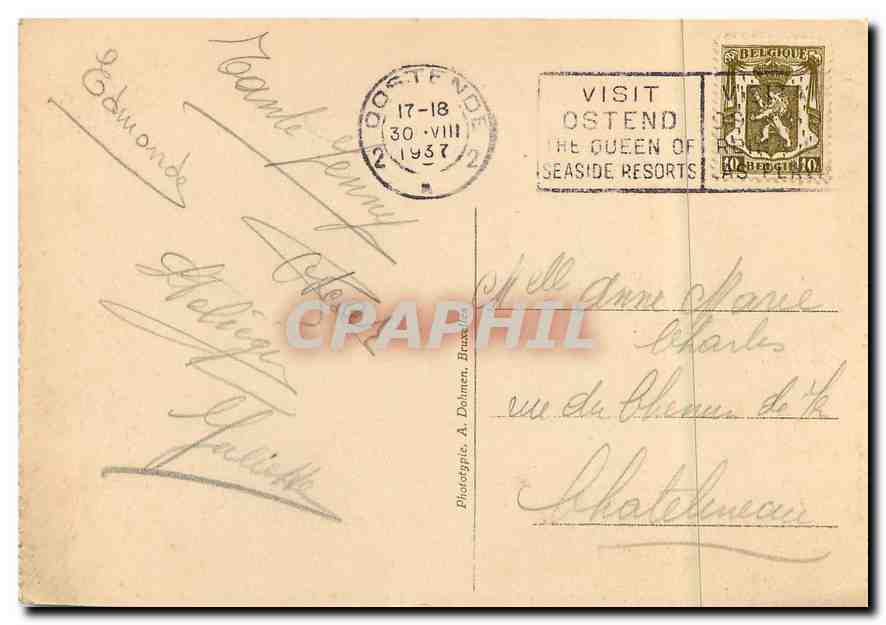 Edmonde
Tante Jenny
Juliette
OOSTENDE
17-18
30 · VIII
1937
2 2
VISIT
OSTEND
THE QUEEN OF
SEASIDE RESORTS
BELGIQUE
10 10
BELGIE
CPAPHIL
Phototypie. A. Dohmen, Bruxelles
Melle Anne Marie
Charles
rue du Chemin de
Chatelineau